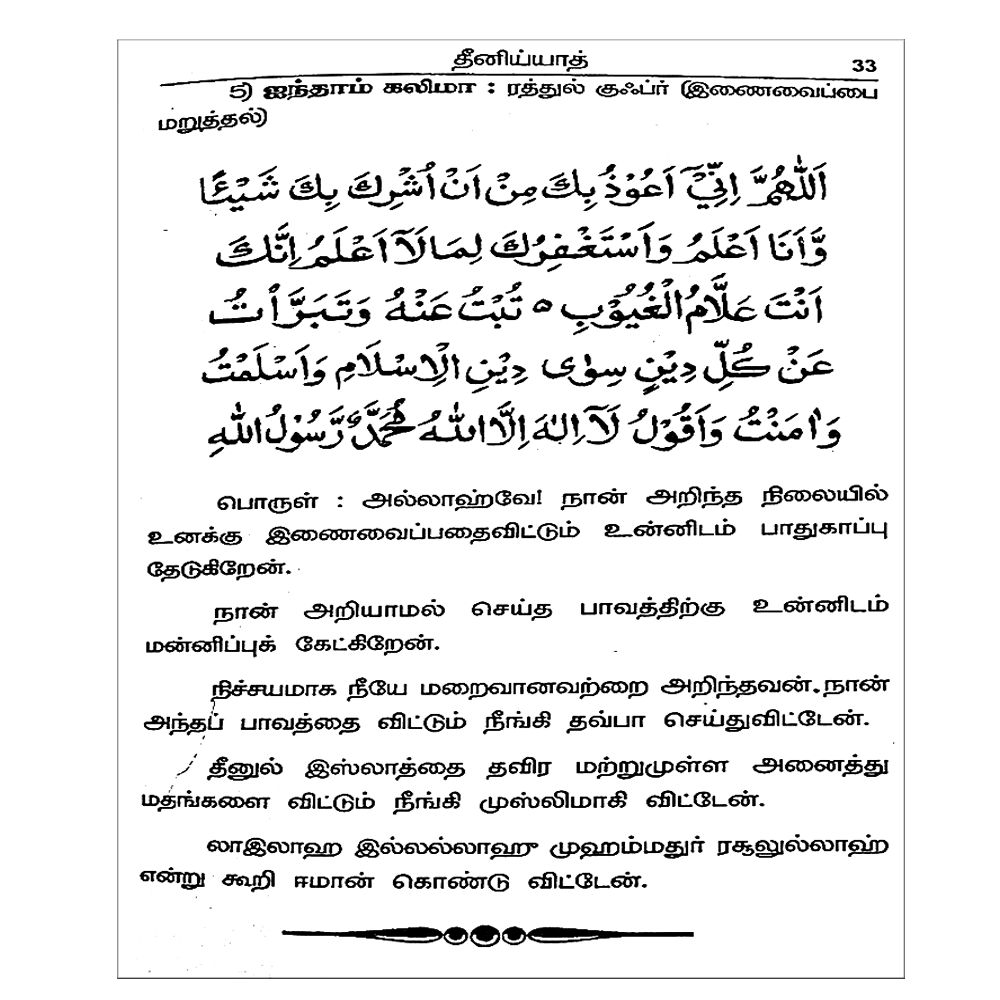 தீனிய்யாத் 33
5) ஐந்தாம் கலிமா : ரத்துல் குஃப்ர் (இணைவைப்பை
மறுத்தல்)
اَللّٰهُمَّ اِنِّيْٓ اَعُوْذُ بِكَ مِنْ اَنْ اُشْرِكَ بِكَ شَيْئًا
وَّاَنَا اَعْلَمُ وَاَسْتَغْفِرُكَ لِمَا لَآ اَعْلَمُ اِنَّكَ
اَنْتَ عَلَّامُ الْغُيُوْبِ ه تُبْتُ عَنْهُ وَتَبَرَّأْتُ
عَنْ كُلِّ دِيْنٍ سِوٰى دِيْنِ الْاِسْلَامِ وَاَسْلَمْتُ
وَاٰمَنْتُ وَاَقُوْلُ لَآ اِلٰهَ اِلَّا اللّٰهُ مُحَمَّدٌ رَّسُوْلُ اللّٰهِ
பொருள் : அல்லாஹ்வே! நான் அறிந்த நிலையில்
உனக்கு இணைவைப்பதைவிட்டும் உன்னிடம் பாதுகாப்பு
தேடுகிறேன்.
நான் அறியாமல் செய்த பாவத்திற்கு உன்னிடம்
மன்னிப்புக் கேட்கிறேன்.
நிச்சயமாக நீயே மறைவானவற்றை அறிந்தவன். நான்
அந்தப் பாவத்தை விட்டும் நீங்கி தவ்பா செய்துவிட்டேன்.
தீனுல் இஸ்லாத்தை தவிர மற்றுமுள்ள அனைத்து
மதங்களை விட்டும் நீங்கி முஸ்லிமாகி விட்டேன்.
லாஇலாஹ இல்லல்லாஹு முஹம்மதுர் ரசூலுல்லாஹ்
என்று கூறி ஈமான் கொண்டு விட்டேன்.